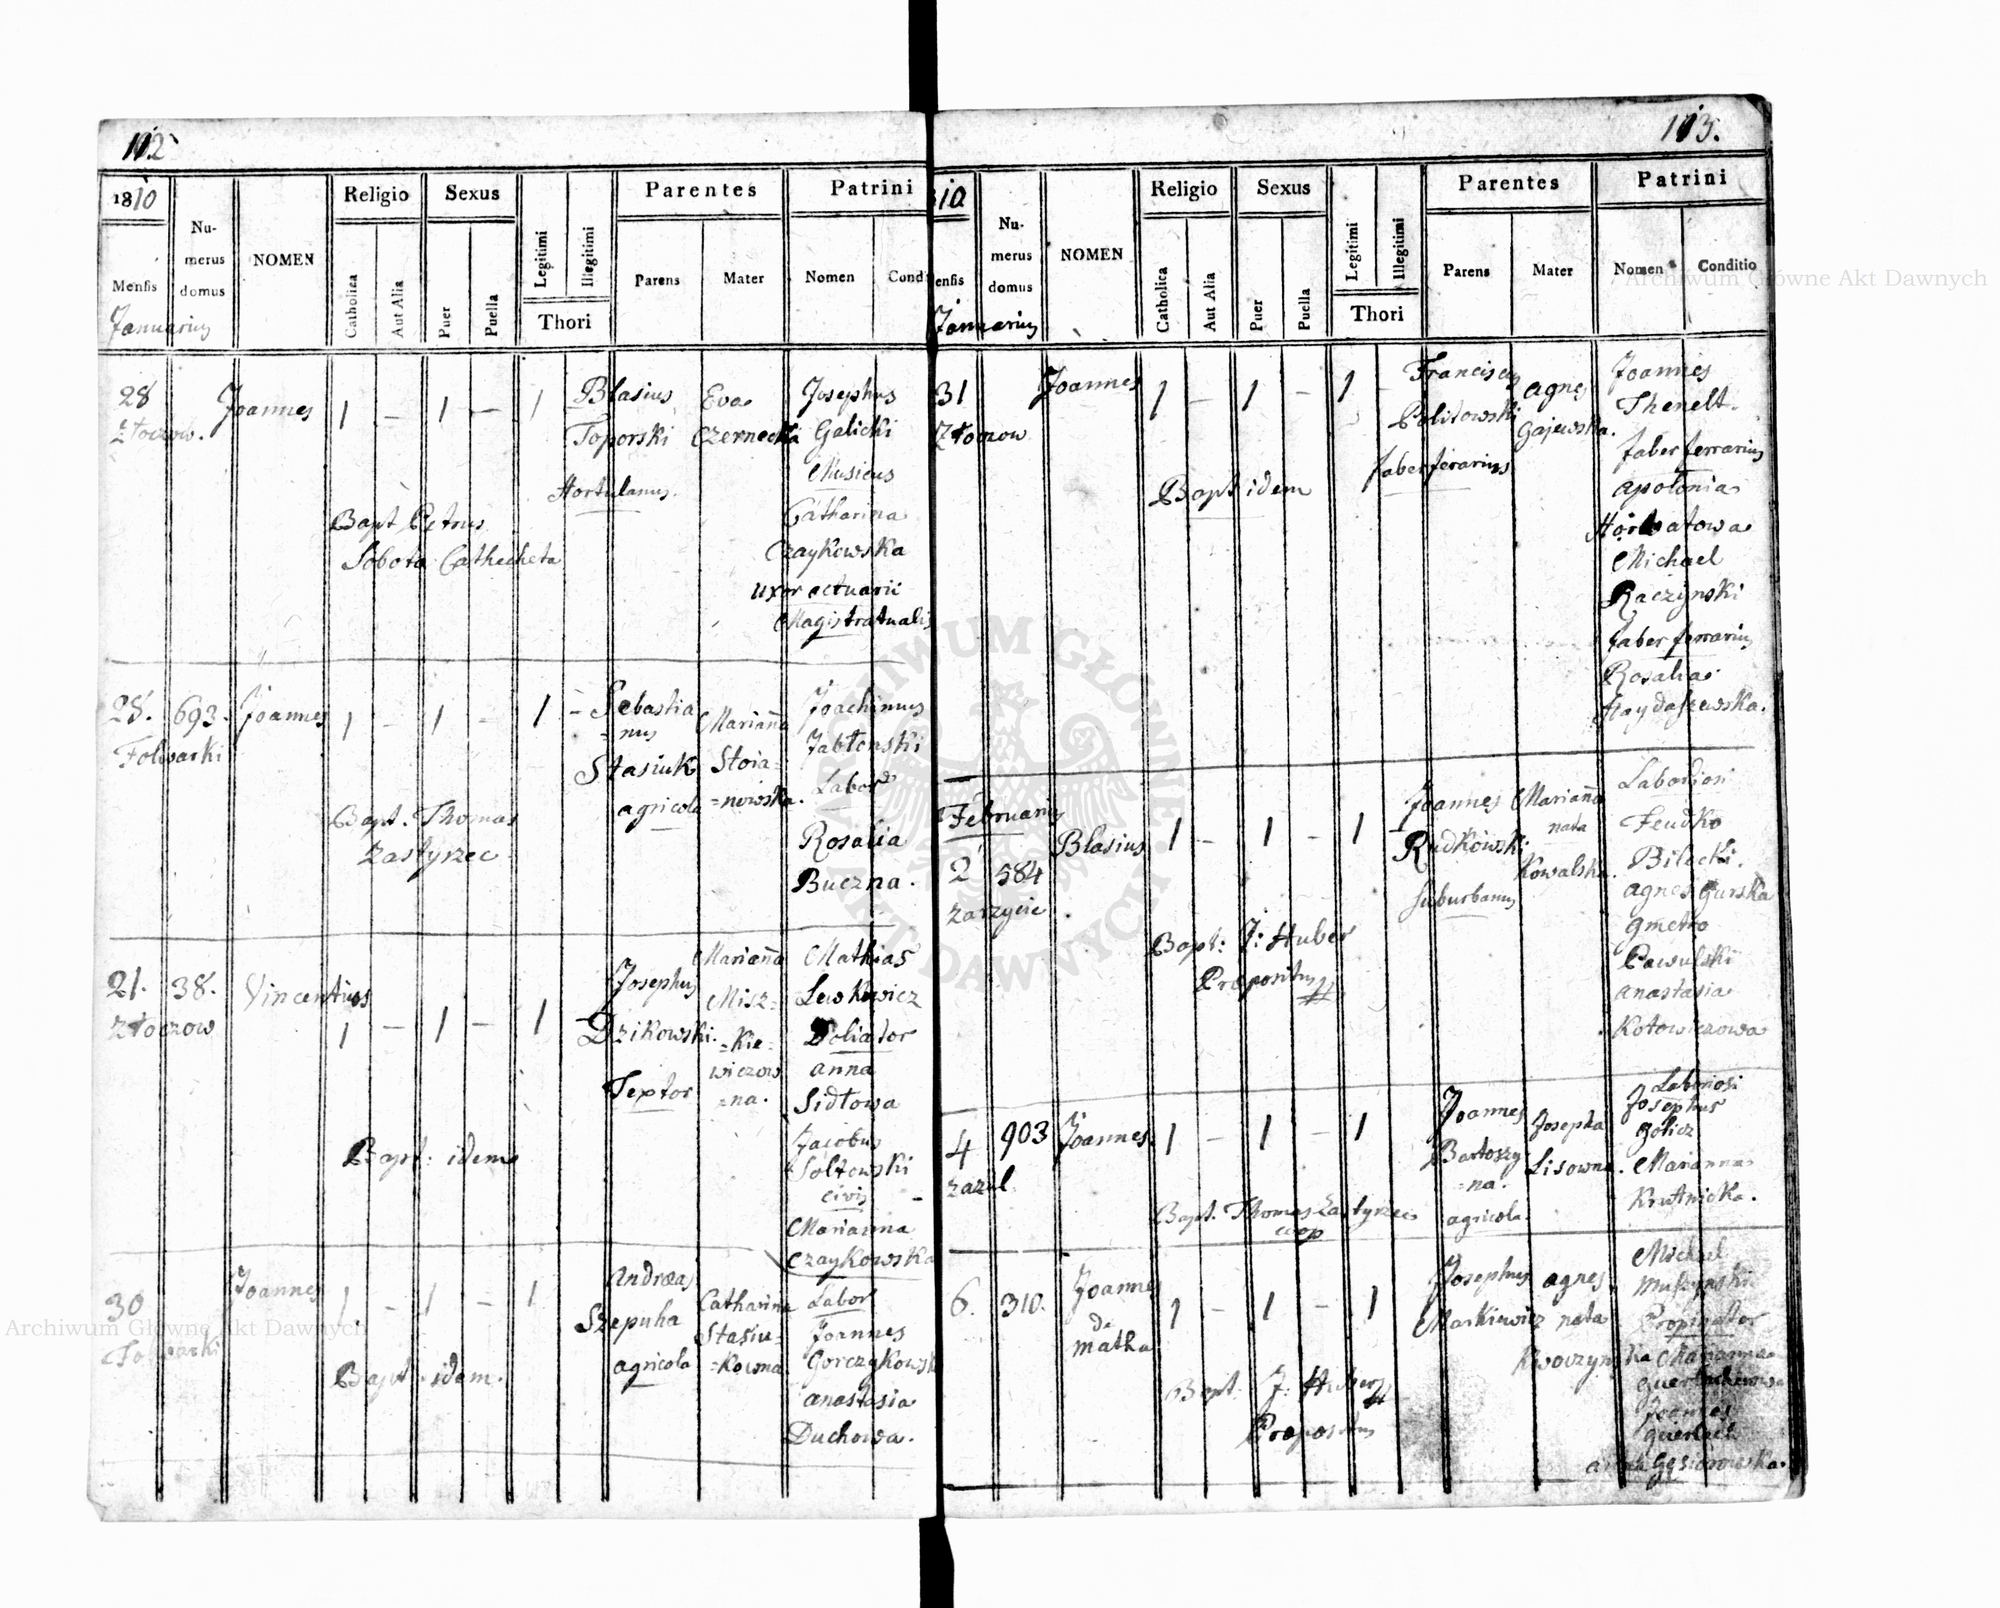 112
1810
Mensis
Januarius
Numerus
domus
NOMEN
Religio
Catholica
Aut Alia
Sexus
Puer
Puella
Legitimi
Illegitimi
Thori
Parentes
Parens
Mater
Patrini
Nomen
Cond
28
Złoczow.
Joannes
1 – 1 – 1 –
Blasius
Toporski
Hortulanus.
Eva
Czernecka
Josephus
Galicki
Musicus
Catharina
Czaykowska
uxor actuarii
Magistratualis
Bapt Petrus
Sobota Cathecheta
28.
Folwarki
693.
Joannes
1 – 1 – 1 –
Sebastia
=nus
Stasiuk
agricola
Marianna
Stoia=
=nowska.
Joachimus
Jabłonski
Labor
Rosalia
Buczna.
Bapt. Thomas
Zastyrzec
21.
Złoczow
38.
Vincentius
1 – 1 – 1 –
Josephus
Dzikowski.
Textor
Marianna
Misz=
=kie=
wiczow
=na.
Mathias
Lewkowicz
Doliator
anna
Sidłowa
Jacobus
Sołtowski
civis
Marianna
Czaykowska
Bapt: idem
30
Folwarki
Joannes
1 – 1 – 1
Andreas
Szepuha
agricola
Catharina
Stasiu=
=kowna
Labor
Joannes
Gorczykowsk
anastasia
Duchowa.
Bapt. idem.
113.
810
ensis
Januarius
Numerus
domus
NOMEN
Religio
Catholica
Aut Alia
Sexus
Puer
Puella
Legitimi
Illegitimi
Thori
Parentes
Parens
Mater
Patrini
Nomen
Conditio
31
Złoczow
Joannes
1 – 1 – 1 –
Franciscus
Politowski
faber ferarius
agnes
Gajewska.
Joannes
Thenelt.
faber ferrarius
apołonia
Horbatowa
Michael
Raczynski
faber ferrarius
Rosalia
Haydaszewska.
Bapt idem
Februarius
2
Zarzycie
584
Blasius
1 – 1 – 1 –
Joannes
Rudkowski
suburbanus
Marianna
nata
Kowalska.
Laboriosi
Feudko
Bilecki.
agnes Gurska
Gmetro
Pawulski
anastasia
Kotowiczowa
Bapt: J: Huber
Propositus
4
Zazul
903
Joannes.
1 – 1 – 1
Joannes
Bartoszy
=na.
agricola.
Josepha
Lisowna.
Laboriosi
Josephus
Golicz
Marianna
Krutnicka.
Bapt. Thomas Zastyrzec
coop
6.
310.
Joannes
de
matha
1 – 1 – 1
Josephus
Markiewicz
agnes
nata
Michael
Muszynski
Propinator
Marianna
Joannes
Guerlach
Gęsiorowska.
Bapt: J: Huber
Propositus
Archiwum Główne Akt Dawnych
Archiwum Główne Akt Dawnych
ARCHIWUM GŁÓWNE AKT DAWNYCH